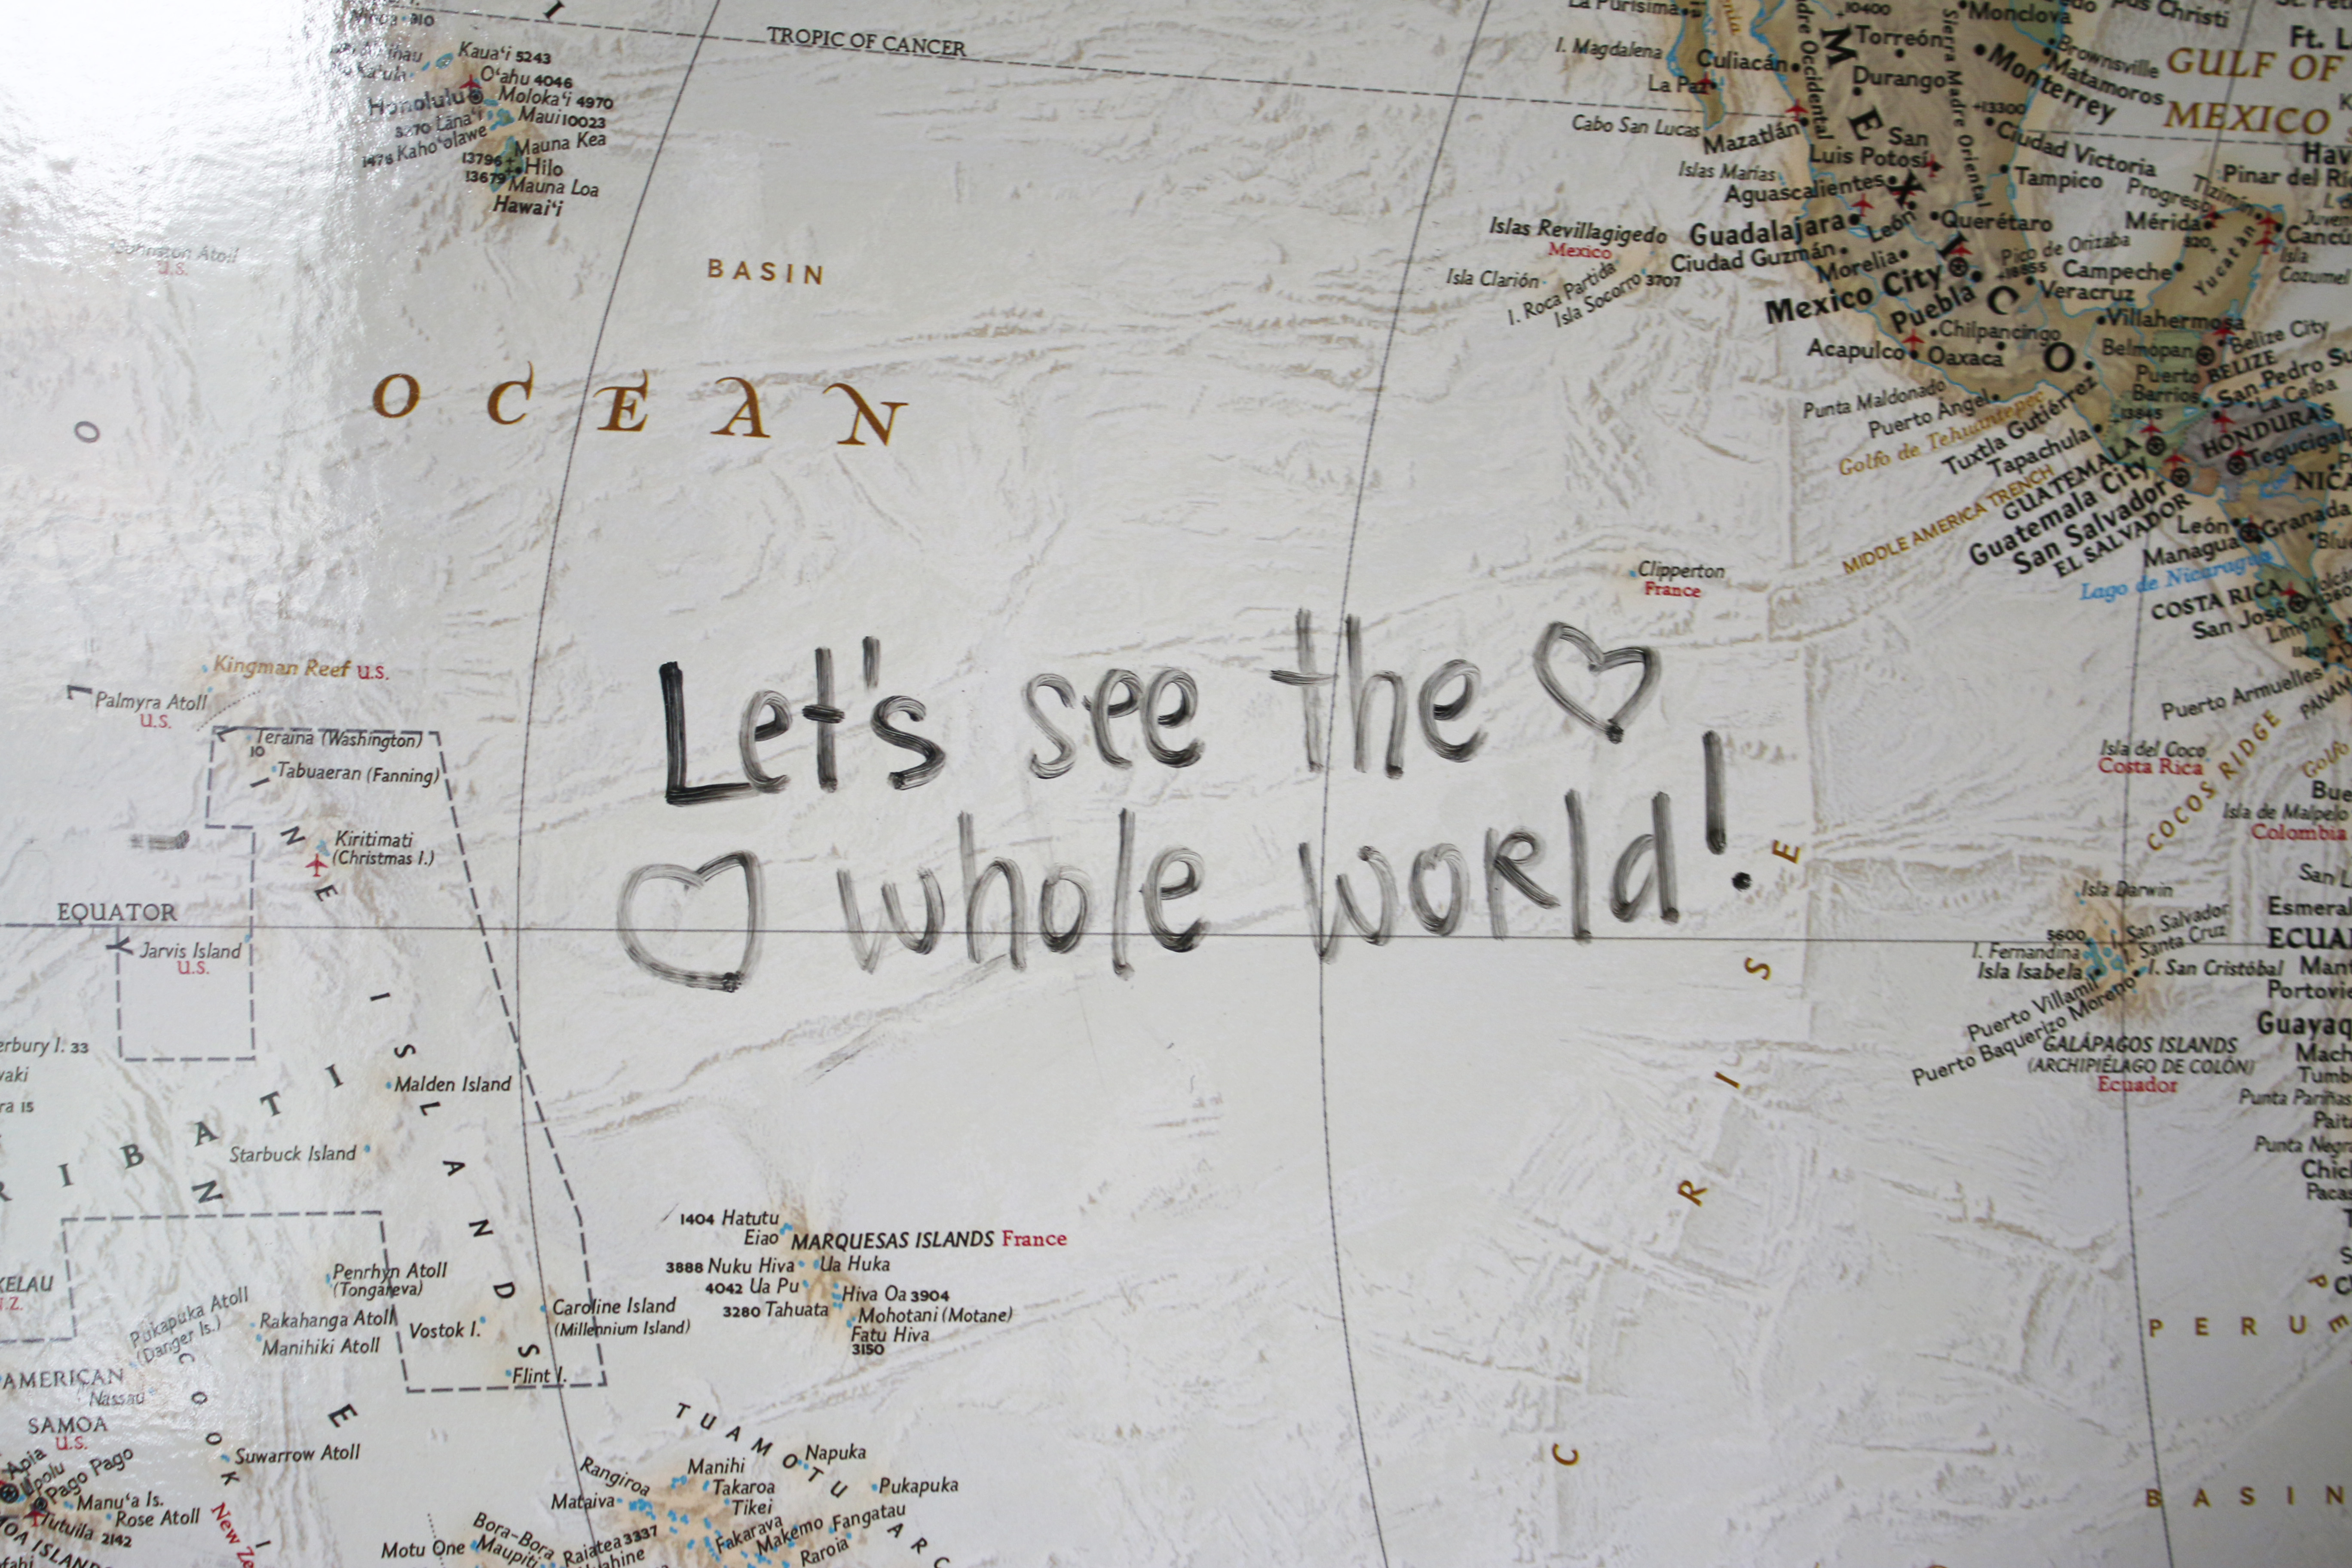 TROPIC OF CANCER
Kaua'i 5243
O'ahu 4046
Honolulu
Moloka'i 4970
Lāna'i
Maui 10023
Kaho'olawe
Mauna Kea
13796
Hilo
13679
Mauna Loa
Hawai'i
Johnston Atoll
U.S.
BASIN
OCEAN
La Purísima
I. Magdalena
Culiacán
La Paz
Cabo San Lucas
Mazatlán
Islas Marías
Aguascalientes
Islas Revillagigedo
Mexico
Guadalajara
Isla Clarión
I. Roca Partida
Isla Socorro 3707
Ciudad Guzmán
MEXICO
10400
Torreón
Durango
Sierra Madre Oriental
Monclova
Monterrey
Brownsville
Matamoros
GULF OF
MEXICO
13300
San
Luis Potosí
Ciudad Victoria
Tampico
León
Querétaro
Morelia
Mexico City
Pico de Orizaba
18855
Puebla
Veracruz
Campeche
Progreso
Tizimín
Mérida
820
Yucatán
Pinar del Río
Isla
Cozumel
Chilpancingo
Acapulco
Oaxaca
Villahermosa
Belmopan
Belize City
BELIZE
Puerto
Barrios
San Pedro
La Ceiba
Punta Maldonado
Puerto Angel
Golfo de Tehuantepec
Tuxtla Gutiérrez
Tapachula
13845
HONDURAS
MIDDLE AMERICA TRENCH
GUATEMALA
Guatemala City
San Salvador
EL SALVADOR
León
Granada
Managua
Lago de Nicaragua
COSTA RICA
San José
Limón
Puerto Armuelles
Clipperton
France
Let's see the ♡
♡ whole world!
Kingman Reef U.S.
Palmyra Atoll
U.S.
Teraina (Washington)
10
Tabuaeran (Fanning)
Kiritimati
(Christmas I.)
EQUATOR
Jarvis Island
U.S.
LINE ISLANDS
Isla del Coco
Costa Rica
COCOS RIDGE
Isla de Malpelo
Colombia
Isla Darwin
5600
San Salvador
I. Santa Cruz
I. Fernandina
Isla Isabela
I. San Cristóbal
Puerto Villamil
Puerto Baquerizo Moreno
GALÁPAGOS ISLANDS
(ARCHIPIÉLAGO DE COLÓN)
Ecuador
RISE
33
15
Malden Island
Starbuck Island
1404 Hatutu
Eiao
MARQUESAS ISLANDS France
3888 Nuku Hiva
Ua Huka
4042 Ua Pu
Hiva Oa 3904
3280 Tahuata
Mohotani (Motane)
Fatu Hiva
3150
Penrhyn Atoll
(Tongareva)
Pukapuka Atoll
(Danger Is.)
Rakahanga Atoll
Manihiki Atoll
Vostok I.
Caroline Island
(Millennium Island)
Flint I.
AMERICAN
SAMOA
U.S.
Nassau
COOK
Suwarrow Atoll
Apia
Upolu
Pago Pago
Manu'a Is.
Rose Atoll
Tutuila 2142
TUAMOTU
Napuka
Rangiroa
Manihi
Takaroa
Pukapuka
Mataiva
Tikei
Fangatau
Fakarava
Makemo
Raroia
Bora-Bora
Motu One
Maupiti
Raiatea 3337
PERU
BASIN